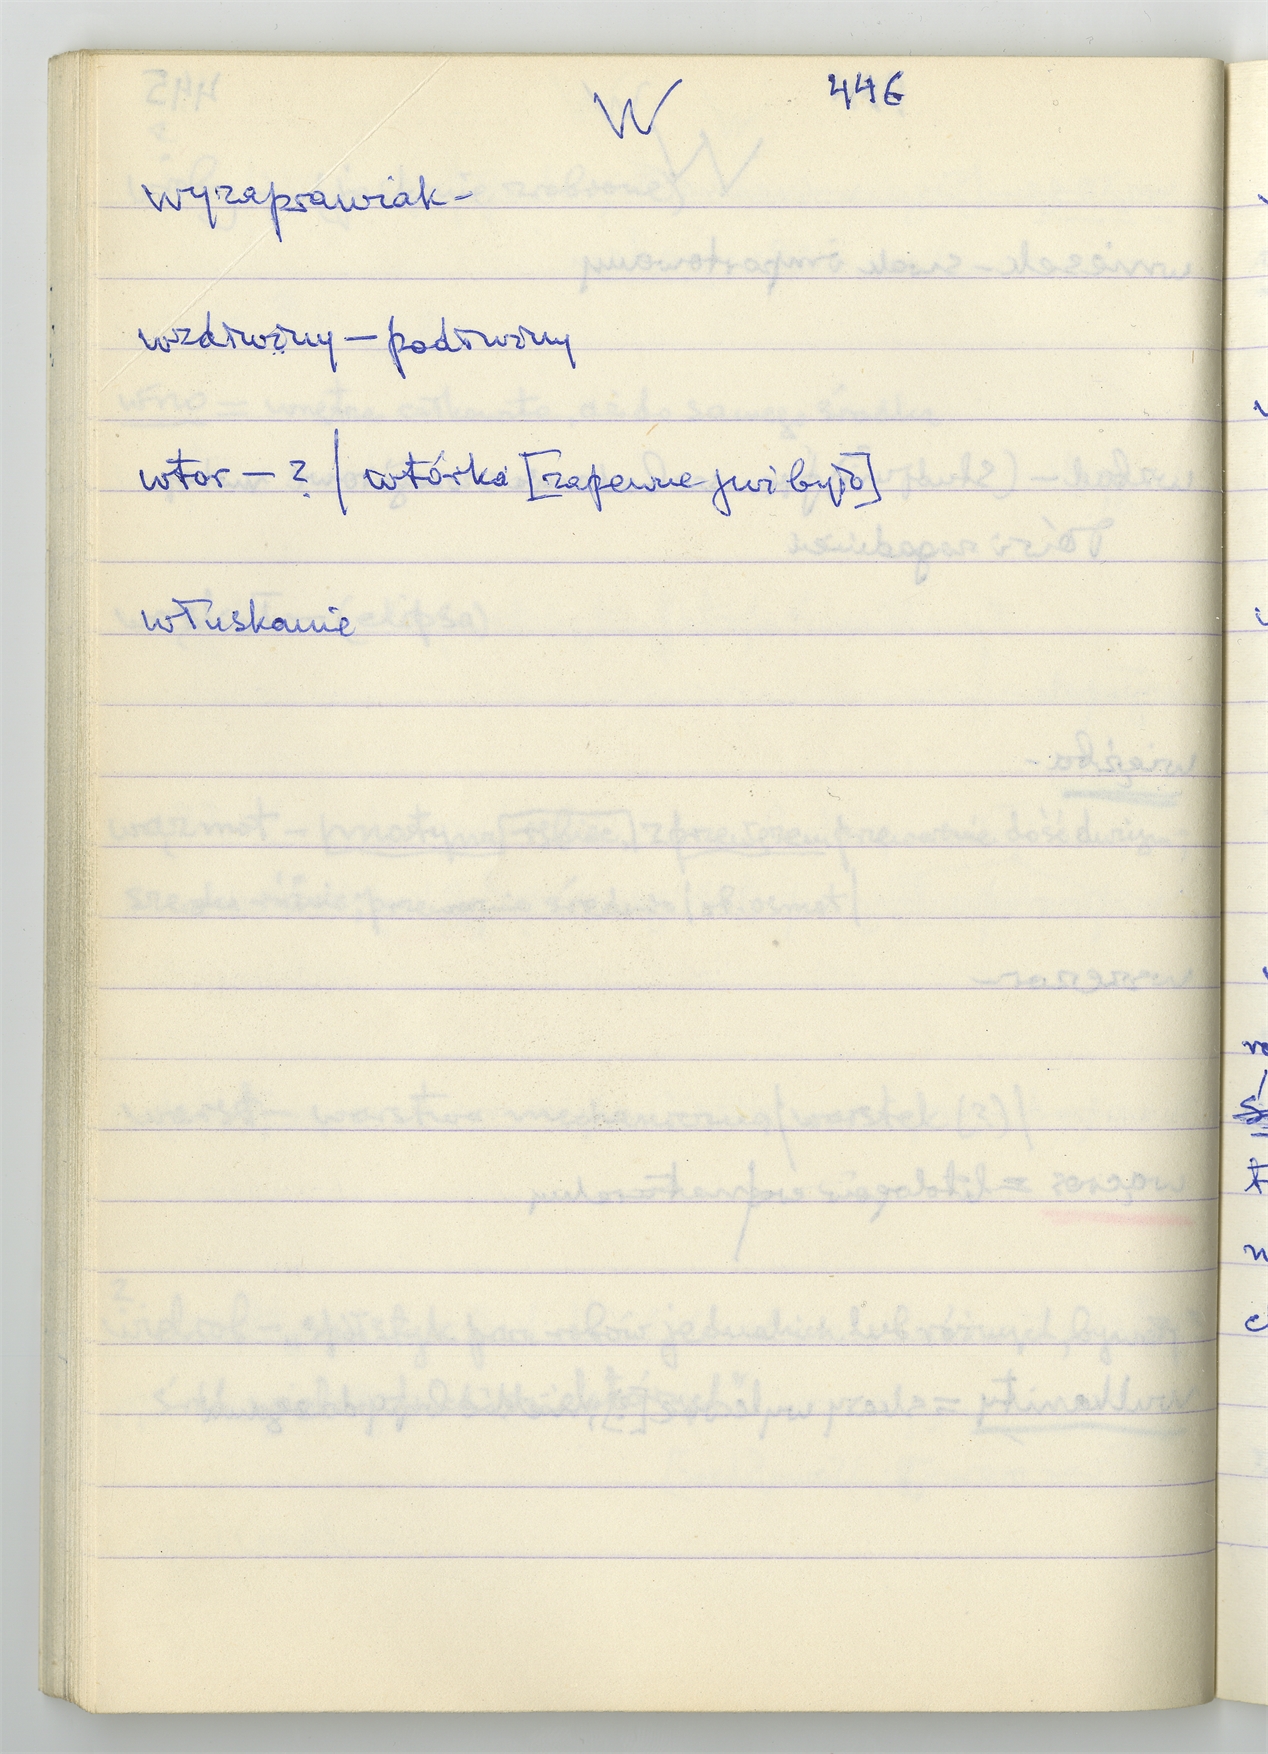 W 446
wyzaprawiak -
wzdiwiny - podiwiny
wtor - ? / wtórka [zapewne już było]
włuskanie